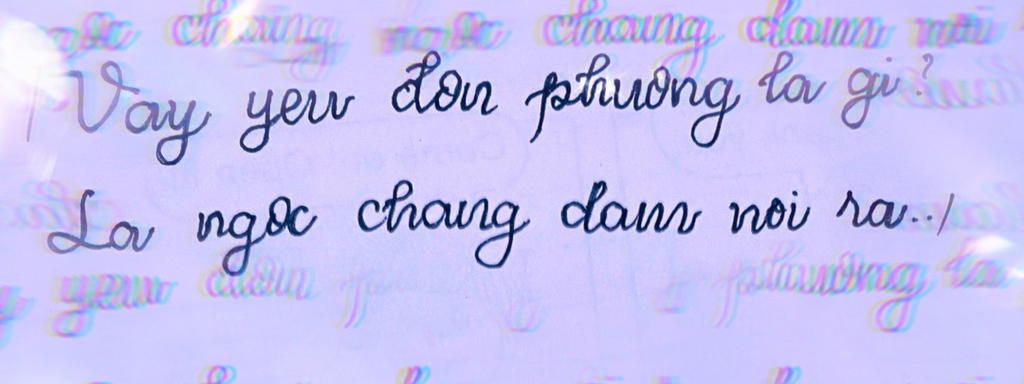 Vay yeu đon phuong la gi?
La ngoc chang dam noi ra..